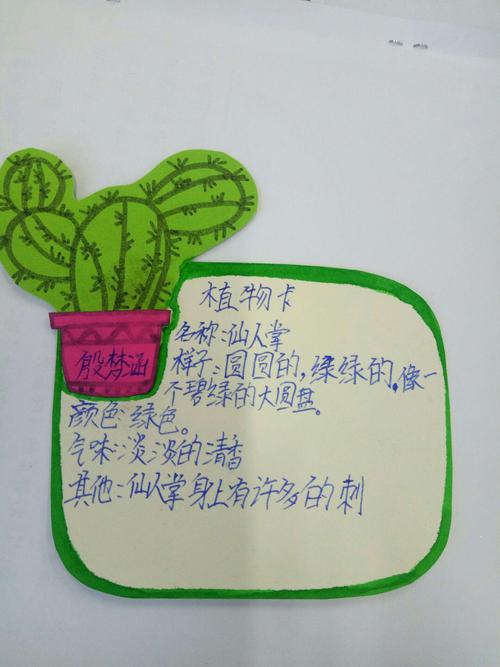 植物卡
名称:仙人掌
殷梦涵
样子:圆圆的,绿绿的,像一
个碧绿的大圆盘。
颜色:绿色。
气味:淡淡的清香
其他:仙人掌身上有许多的刺